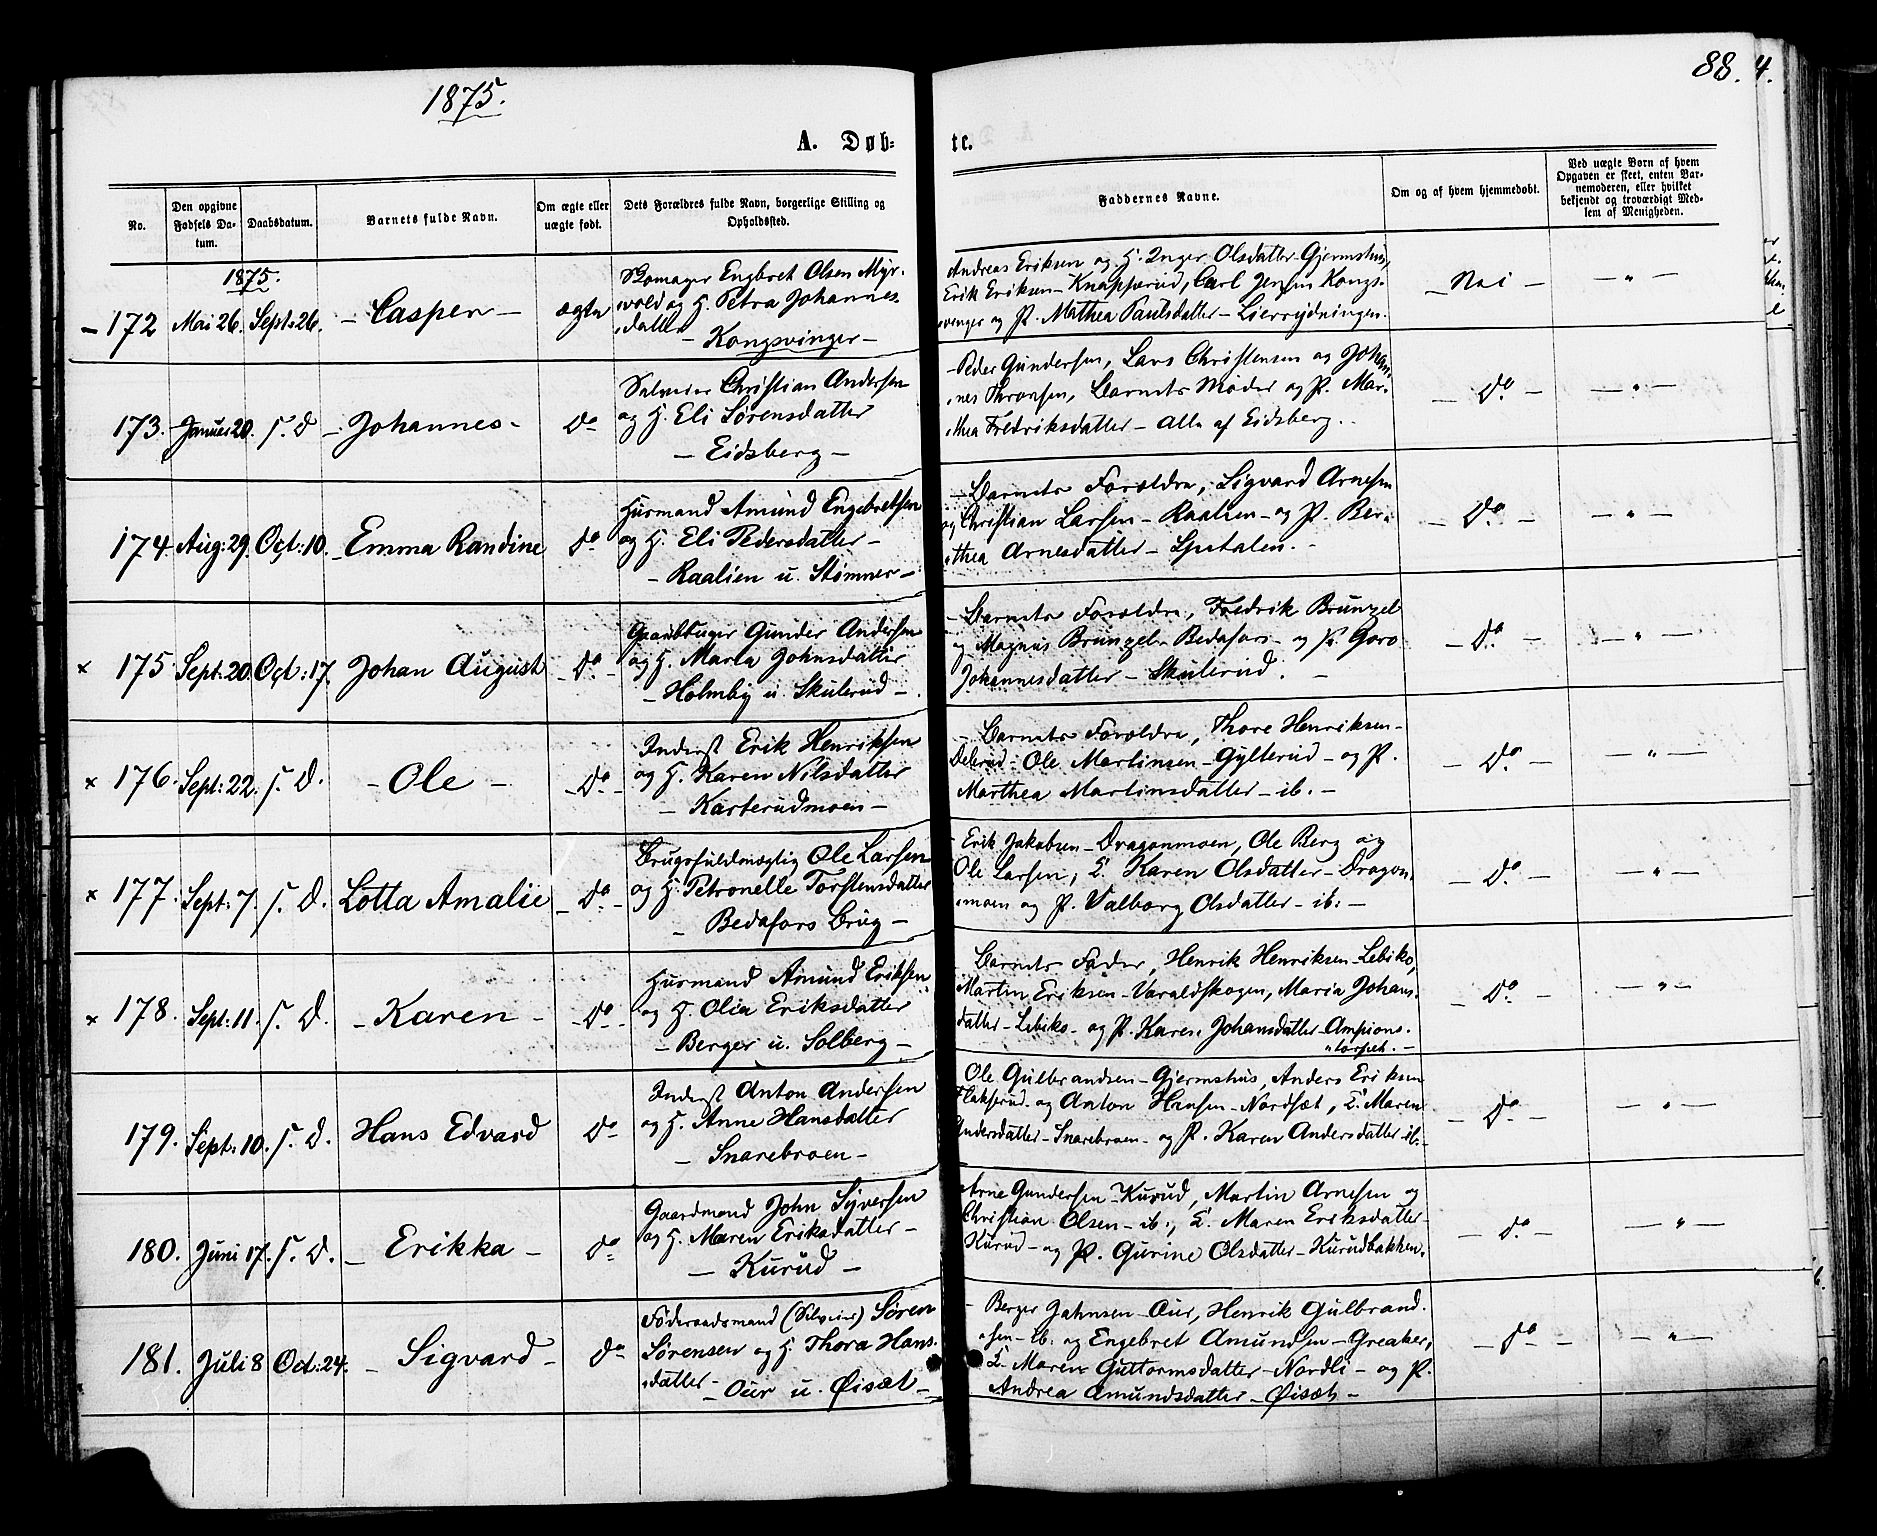 1875.
88. 4.
A. Døb-
te.
No.
Den opgivne Fødsels Da-tum.
Daabsdatum.
Barnets fulde Navn.
Om ægte eller uægte født.
Dets Forældres fulde Navn, borgerlige Stilling og Opholdssted.
Faddernes Navne.
Om og af hvem hjemmedøbt.
Ved uægte Børn af hvem Opgaven er skeet, enten Bar-nemoderen, eller hvilket bekjendt og troværdigt Med-lem af Menigheden.
1875.
- 172 Mai 26. Sept: 26. - Casper - ægte
Skomager Engbret Olsen Myr-
wold og H. Petra Johannes
datter
- Kongsvinger -
Andreas Eriksen og H. Inger Olsdatter Gjermshus,
Erik Eriksen - Knapperud, Carl Jensen Kongs-
svinger og P. Mathea Paulsdatter - Lierrydningen.
- Nei - - " -
173. Januar 20. s. D - Johannes - Do
Selveier Christian Andersen
og H. Eli Sørensdatter
- Eidsberg -
- Peder Gundersen, Lars Christensen og Johan-
nes Thronsen, Barnets Moder og P. Mar-
thea Fredriksdatter - Alle af Eidsberg.
- Do - - " -
174 Aug: 29. Oct: 10. - Emma Randine Do
Husmand Amund Engebretsen
og H. Eli Pedersdatter -
- Raalien u. Stømner -
- Barnets Forældre, Sigvard Arnesen
og Christian Larsen - Raalien - og P. Ber-
thea Arnesdatter - Spetalen. -
- Do - - " -
x 175 Sept. 20. Oct: 17. Johan August - Do -
Gaardbruger Gunder Andersen
og H. Maria Johnsdatter
- Holmby u. Skulerud -
- Barnets Forældre, Fredrik Brunzel
og Magnus Brunzel - Bedafors - og P. Goro
Johannesdatter - Skulerud. -
- Do - - " -
x 176. Sept: 22. s. D. - Ole - - Do -
Inderst Erik Henriksen
og H. Karen Nilsdatter
- Karterudmoen -
- Barnets Forældre, Thore Henriksen -
Delerud - Ole Martinsen - Gylterud - og P.
Marthea Martinsdatter - ib. -
- Do - - " -
x 177. Sept: 7. s. D. Lotta Amalie - Do -
Brugsfuldmægtig Ole Larsen
og H. Petronelle Torstensdatter
- Bedafors Brug -
- Erik Jakobsen - Dragonmoen, Ole Berg og
Ole Larsen, E. Karen Olsdatter - Dragon-
moen og P. Valborg Olsdatter - ib. -
- Do - - " -
x 178. Sept: 11. s. D. - Karen - - Do -
Husmand Amund Eriksen
og H. Olia Eriksdatter
- Berger u. Solberg -
Barnets Fader, Henrik Henriksen - Lebiko,
Martin Eriksen - Varaldskogen, Maria Johans-
datter - Lebiko - og P. Karen Johansdatter - Ampions-
torpet. -
- Do - - " -
179. Sept: 10. s. D. Hans Edvard Do
Inderst Anton Andersen
og H. Anne Hansdatter
- Snarebroen -
Ole Gulbrandsen - Gjermshus, Anders Eriksen
Flakserud - og Anton Hansen - Nordsæt, E. Maren
Andersdatter - Snarebroen - og P. Karen Andersdatter ib. -
- Do - - " -
180. Juni 17. s. D. - Erikka - Do
Gaardmand John Syversen
og H. Maren Eriksdatter -
- Kurud -
Arne Gundersen - Kurud, Martin Arnesen og
Christian Olsen - ib., E. Maren Eriksdatter -
Kurud - og P. Gurine Olsdatter - Kurudbakken.
- do. - - " -
181. Juli 8 Oct: 24. - Sigvard - Do
Føderaadsmand (Selveier) Søren
Sørensen og H. Thora Hans-
datter -
- Our u. Øisæt -
- Berger Jahnsen - Our, Henrik Gulbrand-
sen - ib. og Engebret Amundsen - Greaker,
E. Maren Guttormsdatter - Nordli - og P.
Andrea Amundsdatter - Øisæt -
- do - - " -